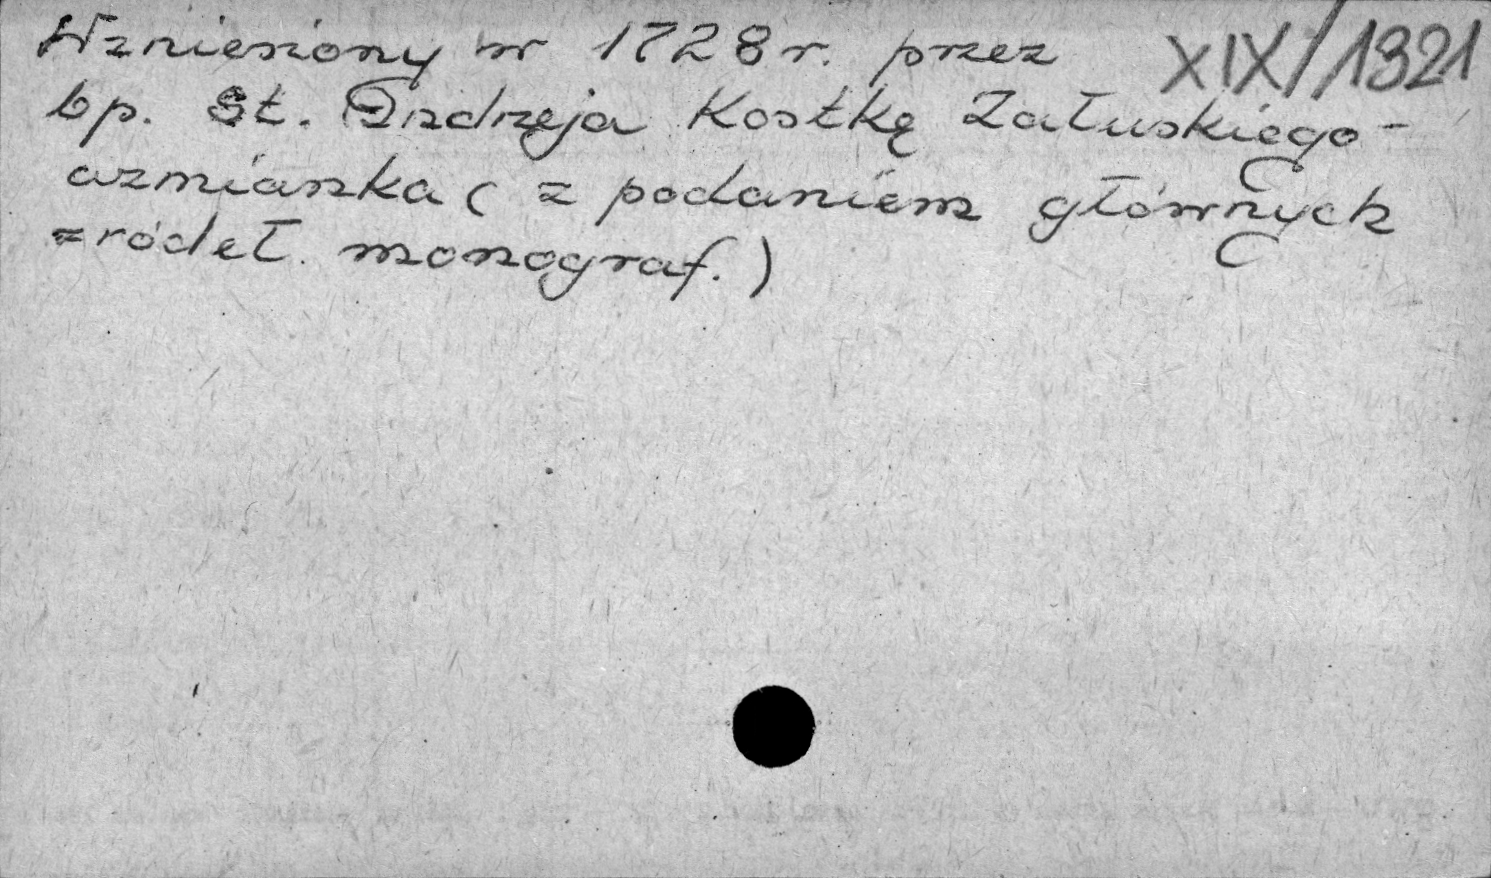 Wzniesiony w 1728 r. przez XIX/1321
bp. St. Andrzeja Kostkę Załuskiego -
wzmianka ( z podaniem głównych
źródeł monograf. )